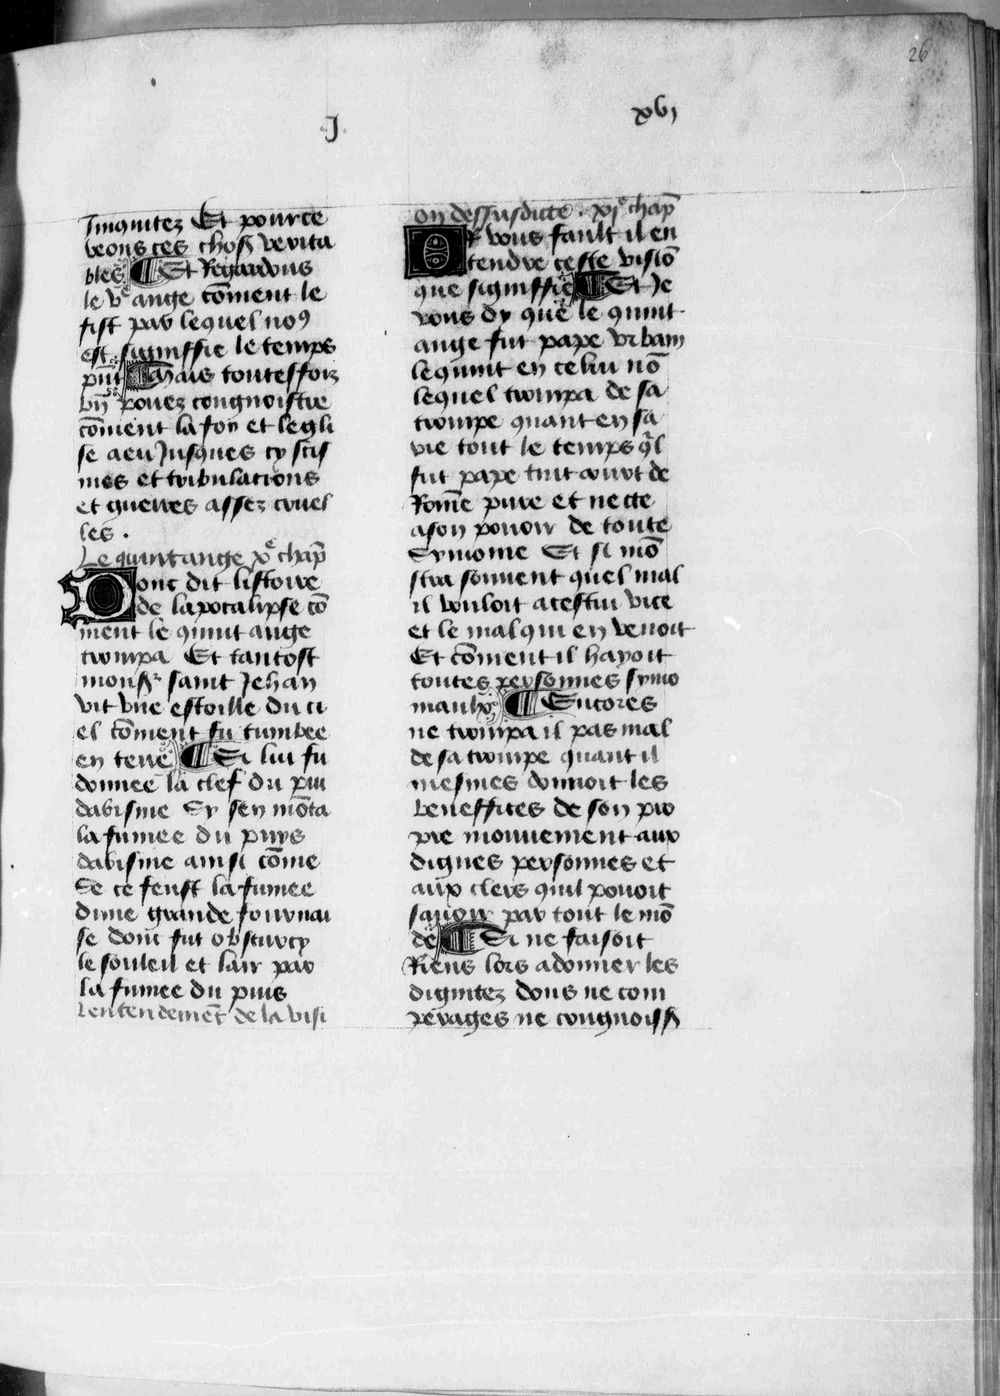 26
J
xvj
Iniquitez Et pource
veons ces chos̄ verita
bles ¶ Et Regardons
le ve ange cōment le
fist par lequel noꝯ
est signiffie le temps
pn̄t ¶ Mais toutesfoiz
bn̄ pouez congnoistre
cōment la foy et legli
se a eu Jusques cy scis
mes et tribulacions
et guerres assez cruel
les .
Le quint ange xe chap̄
Donc dit listoire
de lapocalipse cō
ment le quint ange
trompa Et tantost
monsr saint Jehan
vit vne estoille du ci
el cōment fu tumbee
en terre ¶ Si lui fu
donnee la clef du pui
dabisme Sy sen mōta
la fumee du puys
dabisme ainsi cōme
Se ce feust la fumee
dune grande fournai
se dont fut obscurcy
le souleil et lair par
la fumee du puis
Lentendemēt de la visi
on dessusdicte . xje chap̄
Or vous fault il en
tendre ceste visiō
que signiffie ¶ Et Je
vous dy que le quint
ange fut pape vrbain
le quint en celui nō
lequel trompa de sa
trompe quant en sa
vie tout le temps ql̄
fut pape tint court de
Rom̄e pure et necte
a son pouoir de toute
Symonie Et si mō
stra souuent quel mal
il vouloit a cestui vice
et le mal qui en venoit
Et cōment il hayoit
toutes personnes symo
maulx ¶ Encores
ne trompa il pas mal
de sa trompe quant il
mesmes donnoit les
beneffices de son pro
pre mouuement aux
dignes personnes et
aux clers quil pouoit
sauoir par tout le mō
de ¶ Si ne faisoit
Riens lors a donner les
dignitez dons ne com
perages ne congnoiss̄